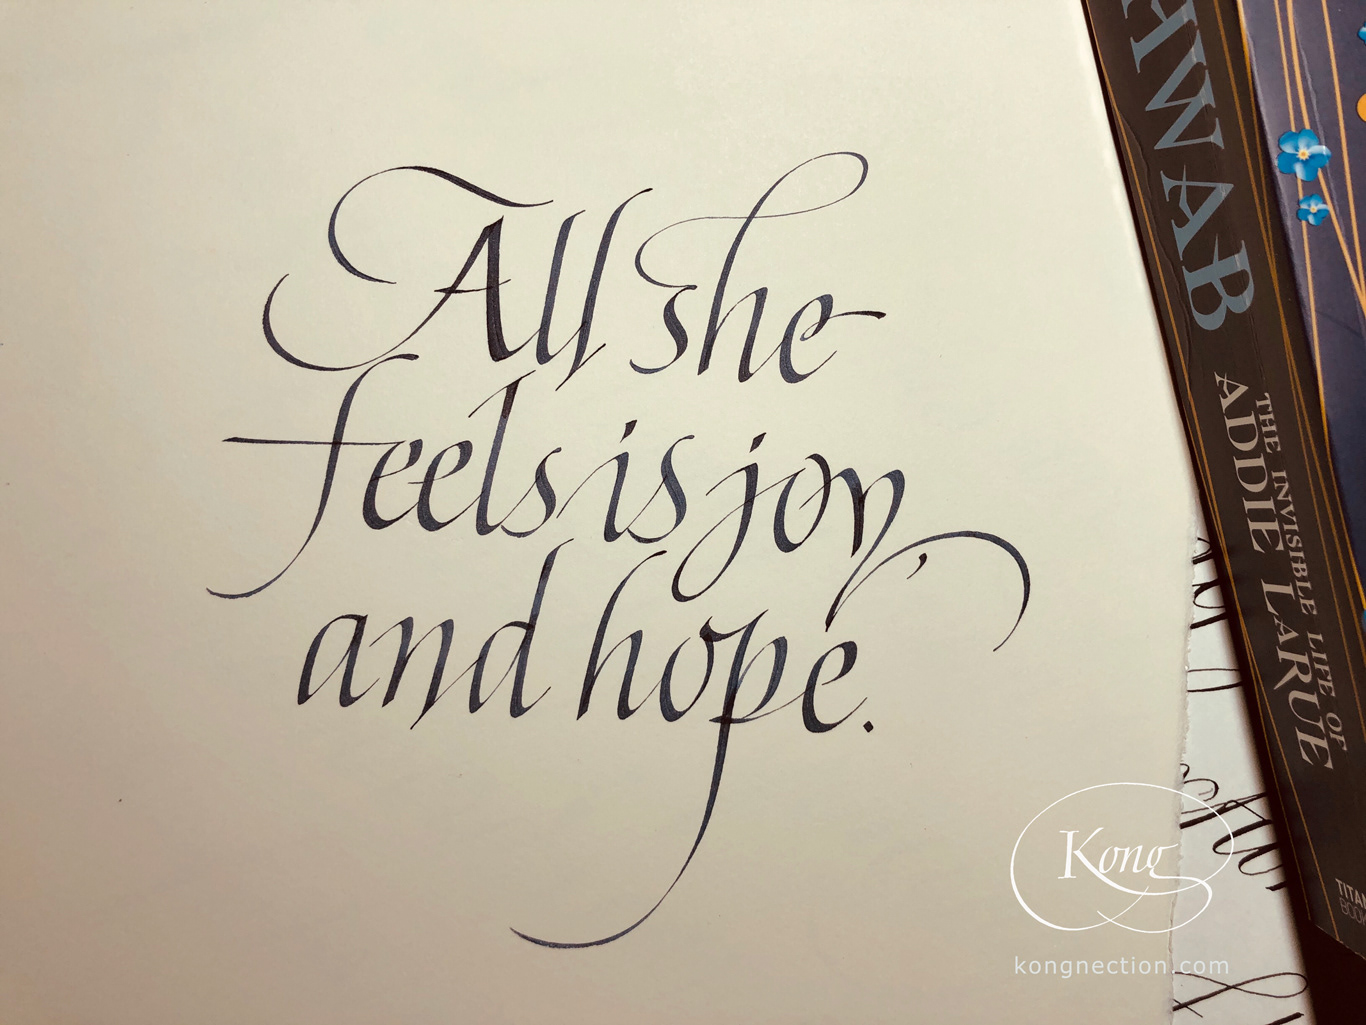 All she
feels is joy,
and hope.
HWAB
THE INVISIBLE LIFE OF
ADDIE LARUE
TITAN
Kong
kongnection.com
&